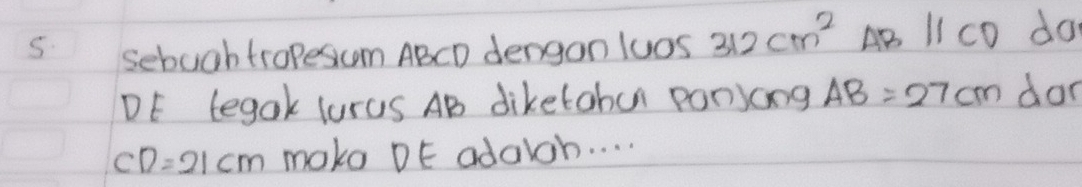 5. Sebuah trapesium ABCD dengan luas 312 cm² AB || CD dan
DE tegak lurus AB diketahui panjang AB = 27 cm dan
CD = 21 cm maka DE adalah....